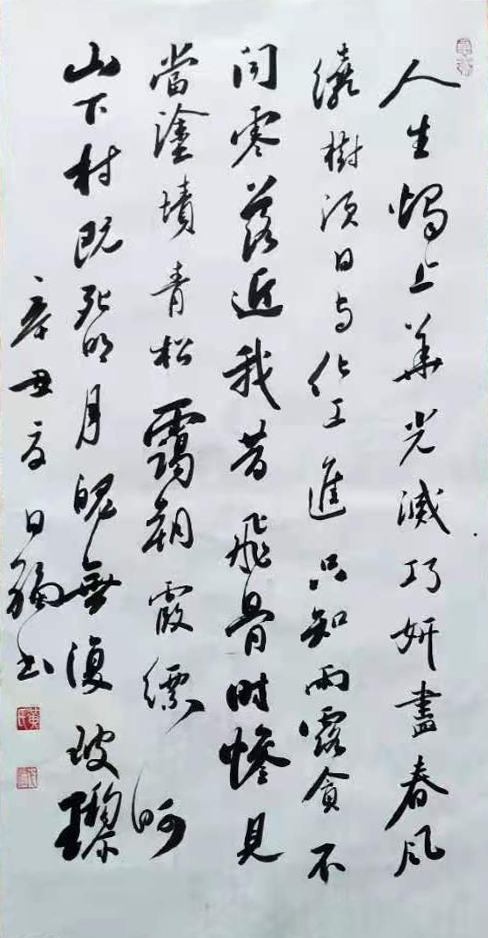 人生燭上華光滅巧妍盡春風
繞樹頭日与化工進只知雨露貪不
聞零落近我昔飛骨時慘見
當塗墳青松靄朝霞縹緲
山下村既死明月魄無復玻瓈
辛丑夏日書